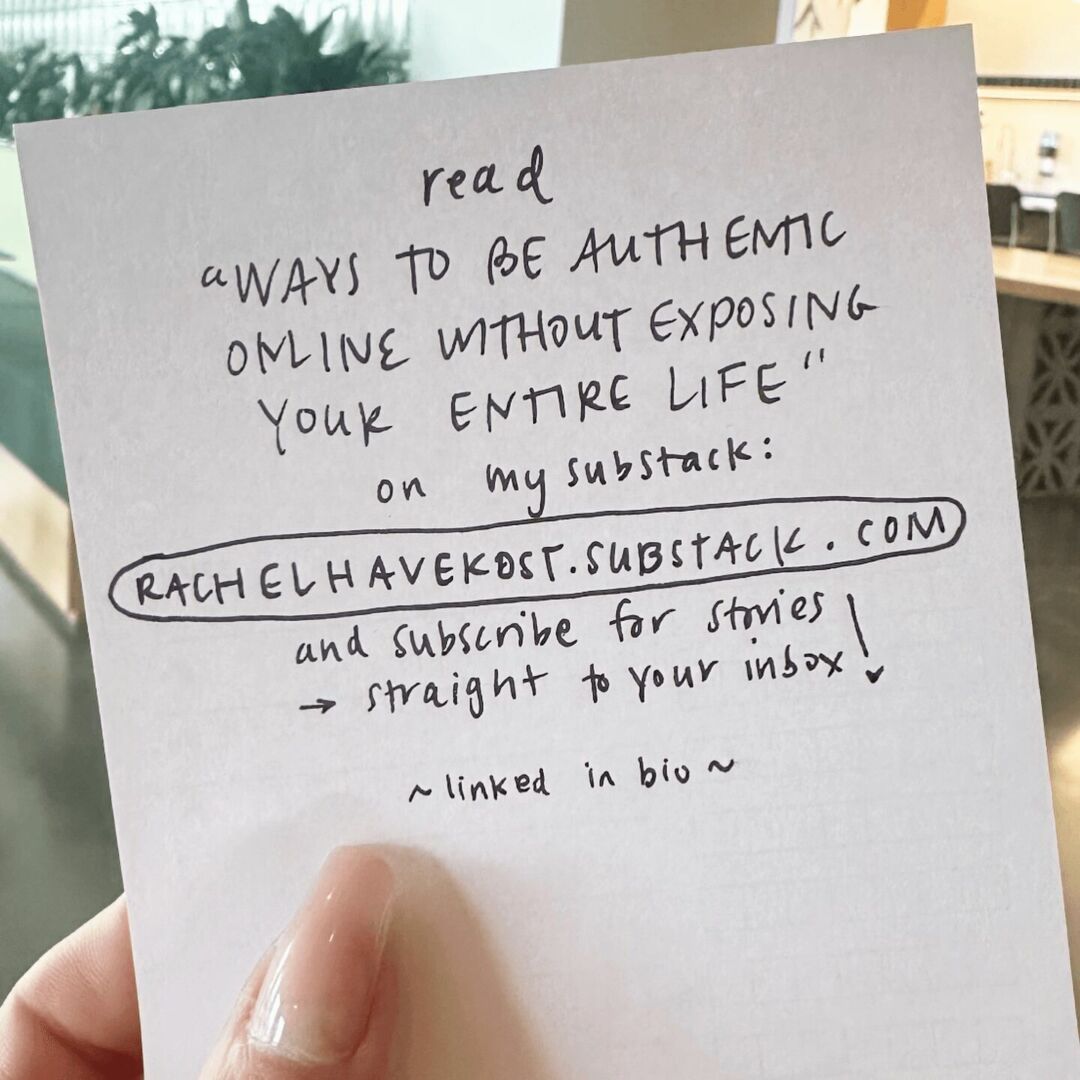 read
"WAYS TO BE AUTHENTIC
ONLINE WITHOUT EXPOSING
YOUR ENTIRE LIFE"
on my substack:
RACHELHAVEKOST.SUBSTACK.COM
and subscribe for stories
→ straight to your inbox!
~linked in bio~